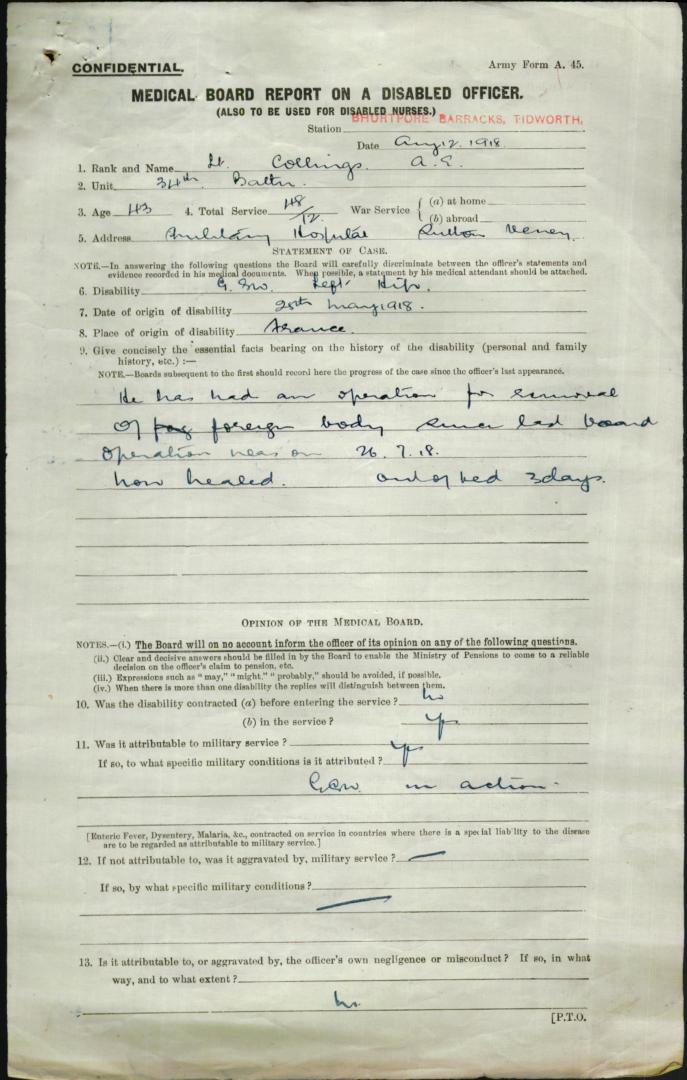 CONFIDENTIAL.
Army Form A. 45.
MEDICAL BOARD REPORT ON A DISABLED OFFICER.
(ALSO TO BE USED FOR DISABLED NURSES.)
Station BHURTPORE BARRACKS, TIDWORTH,
Date Aug 12. 1918.
1. Rank and Name Lt. Collings. A. E.
2. Unit 34th Battn.
3. Age 43 4. Total Service 48/12 War Service { (a) at home
(b) abroad
5. Address Military Hospital Sutton Veney.
STATEMENT OF CASE.
NOTE.—In answering the following questions the Board will carefully discriminate between the officer's statements and
evidence recorded in his medical documents. When possible, a statement by his medical attendant should be attached.
6. Disability G.S.W. Left Hip.
7. Date of origin of disability 28th May 1918.
8. Place of origin of disability France.
9. Give concisely the essential facts bearing on the history of the disability (personal and family
history, etc.) :—
NOTE.—Boards subsequent to the first should record here the progress of the case since the officer's last appearance.
He has had an operation for removal
of foreign body since last board
operation was on 26.7.18.
now healed. out of bed 3 days.
OPINION OF THE MEDICAL BOARD.
NOTES.—(i.) The Board will on no account inform the officer of its opinion on any of the following questions.
(ii.) Clear and decisive answers should be filled in by the Board to enable the Ministry of Pensions to come to a reliable
decision on the officer's claim to pension, etc.
(iii.) Expressions such as "may," "might," "probably," should be avoided, if possible.
(iv.) When there is more than one disability the replies will distinguish between them.
10. Was the disability contracted (a) before entering the service ? No
(b) in the service ? Yes
11. Was it attributable to military service ? Yes
If so, to what specific military conditions is it attributed ?
G.S.W. in action.
[Enteric Fever, Dysentery, Malaria, &c., contracted on service in countries where there is a special liability to the disease
are to be regarded as attributable to military service.]
12. If not attributable to, was it aggravated by, military service ? —
If so, by what specific military conditions ?
—
13. Is it attributable to, or aggravated by, the officer's own negligence or misconduct ? If so, in what
way, and to what extent ?
No.
[P.T.O.